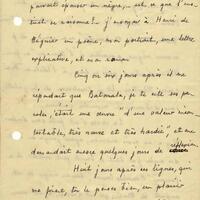 pouvait épouser un nègre, est-ce que l'ins-
tinct se raisonne! j'envoyai à Henri de
Régnier un poème, mon portrait, une lettre
explicative, et ma
Cinq ou six jours après il me
répondait que Batouala, je te cite ses pa-
role, était une œuvre "d'une valeur incon-
testable, très neuve et très hardie", et me
demandait encore quelques jours de réflexion
Huit jours après ces lignes, qui
me firent, tu le penses bien, un plaisir